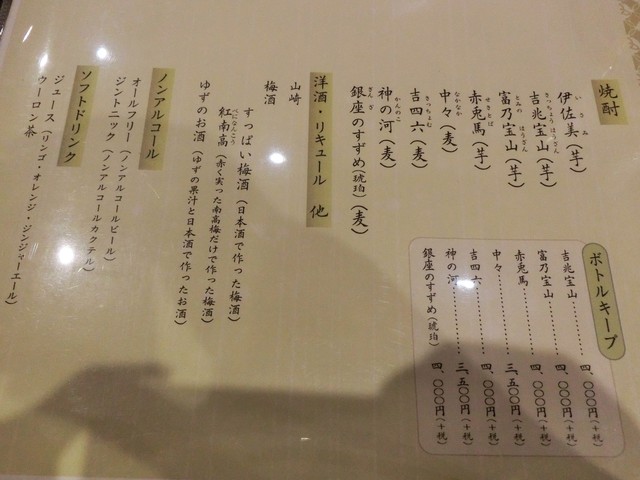 焼酎
伊佐美(芋)
いさみ
吉兆宝山(芋)
きっちょうほうざん
富乃宝山(芋)
とみのほうざん
赤兎馬(芋)
せきとば
中々(麦)
なかなか
吉四六(麦)
きっちょむ
神の河(麦)
かんのこ
銀座のすずめ(琥珀)(麦)
ぎんざ
ボトルキープ
吉兆宝山………四、〇〇〇円(+税)
富乃宝山………四、〇〇〇円(+税)
赤兎馬………四、〇〇〇円(+税)
中々………三、五〇〇円(+税)
吉四六………四、〇〇〇円(+税)
神の河………三、五〇〇円(+税)
銀座のすずめ(琥珀)…四、〇〇〇円(+税)
洋酒・リキュール 他
山崎
梅酒
すっぱい梅酒(日本酒で作った梅酒)
紅南高(赤く実った南高梅だけで作った梅酒)
べになんこう
ゆずのお酒(ゆずの果汁と日本酒で作ったお酒)
ノンアルコール
オールフリー(ノンアルコールビール)
ジントニック(ノンアルコールカクテル)
ソフトドリンク
ジュース(リンゴ・オレンジ・ジンジャーエール)
ウーロン茶